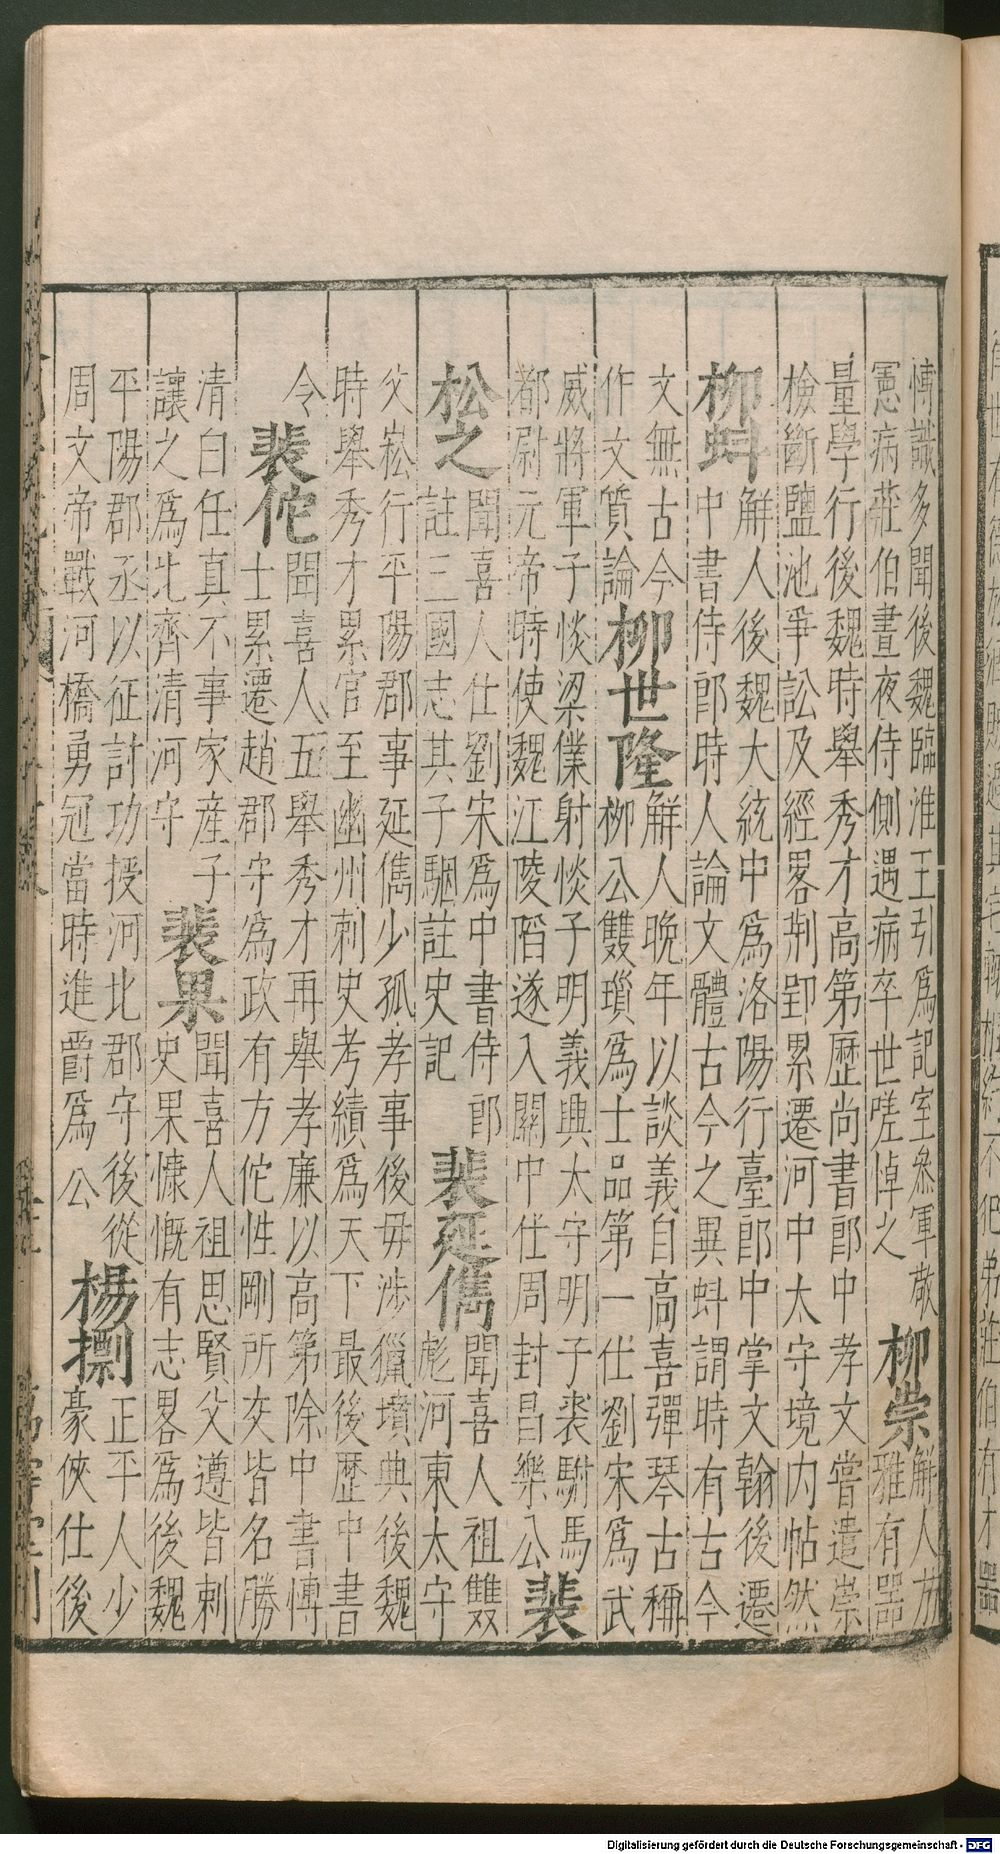 慱識多聞後魏臨淮王引爲記室叅軍敵
憲病莊伯晝夜侍側遇病卒世嗟悼之
柳崇
解人放
雅有器
量學行後魏時舉秀才高第歷尚書郎中孝文嘗遣崇
檢斷鹽池爭訟及經畧荆郢累遷河中太守境内帖然
柳蚪
解人後魏大統中爲洛陽行臺郎中掌文翰後遷
中書侍郎時人論文體古今之異蚪謂時有古今
文無古今
作文質論
柳世隆
解人晚年以談義自高喜彈琴古稱
柳公雙瑣爲士品第一仕劉宋爲武
威將軍子惔梁僕射惔子明義興太守明子裘駙馬
都尉元帝時使魏江陵䧟遂入關中仕周封昌樂公
裴
松之
聞喜人仕劉宋爲中書侍郎
註三國志其子駰註史記
裴延儁
聞喜人祖雙
彪河東太守
父崧行平陽郡事延儁少孤孝事後毋涉獵墳典後魏
時舉秀才累官至幽州刺史考績爲天下最後歷中書
令
裴佗
聞喜人五舉秀才再舉孝廉以高第除中書慱
士累遷趙郡守爲政有方佗性剛所交皆名勝
清白任真不事家産子
讓之爲北齊清河守
裴果
聞喜人祖思賢父遵皆刺
史果慷慨有志畧爲後魏
平陽郡丞以征討功授河北郡守後從
周文帝戰河橋勇冠當時進爵爲公
楊㯹
正平人少
豪俠仕後
Digitalisierung gefördert durch die Deutsche Forschungsgemeinschaft - DFG